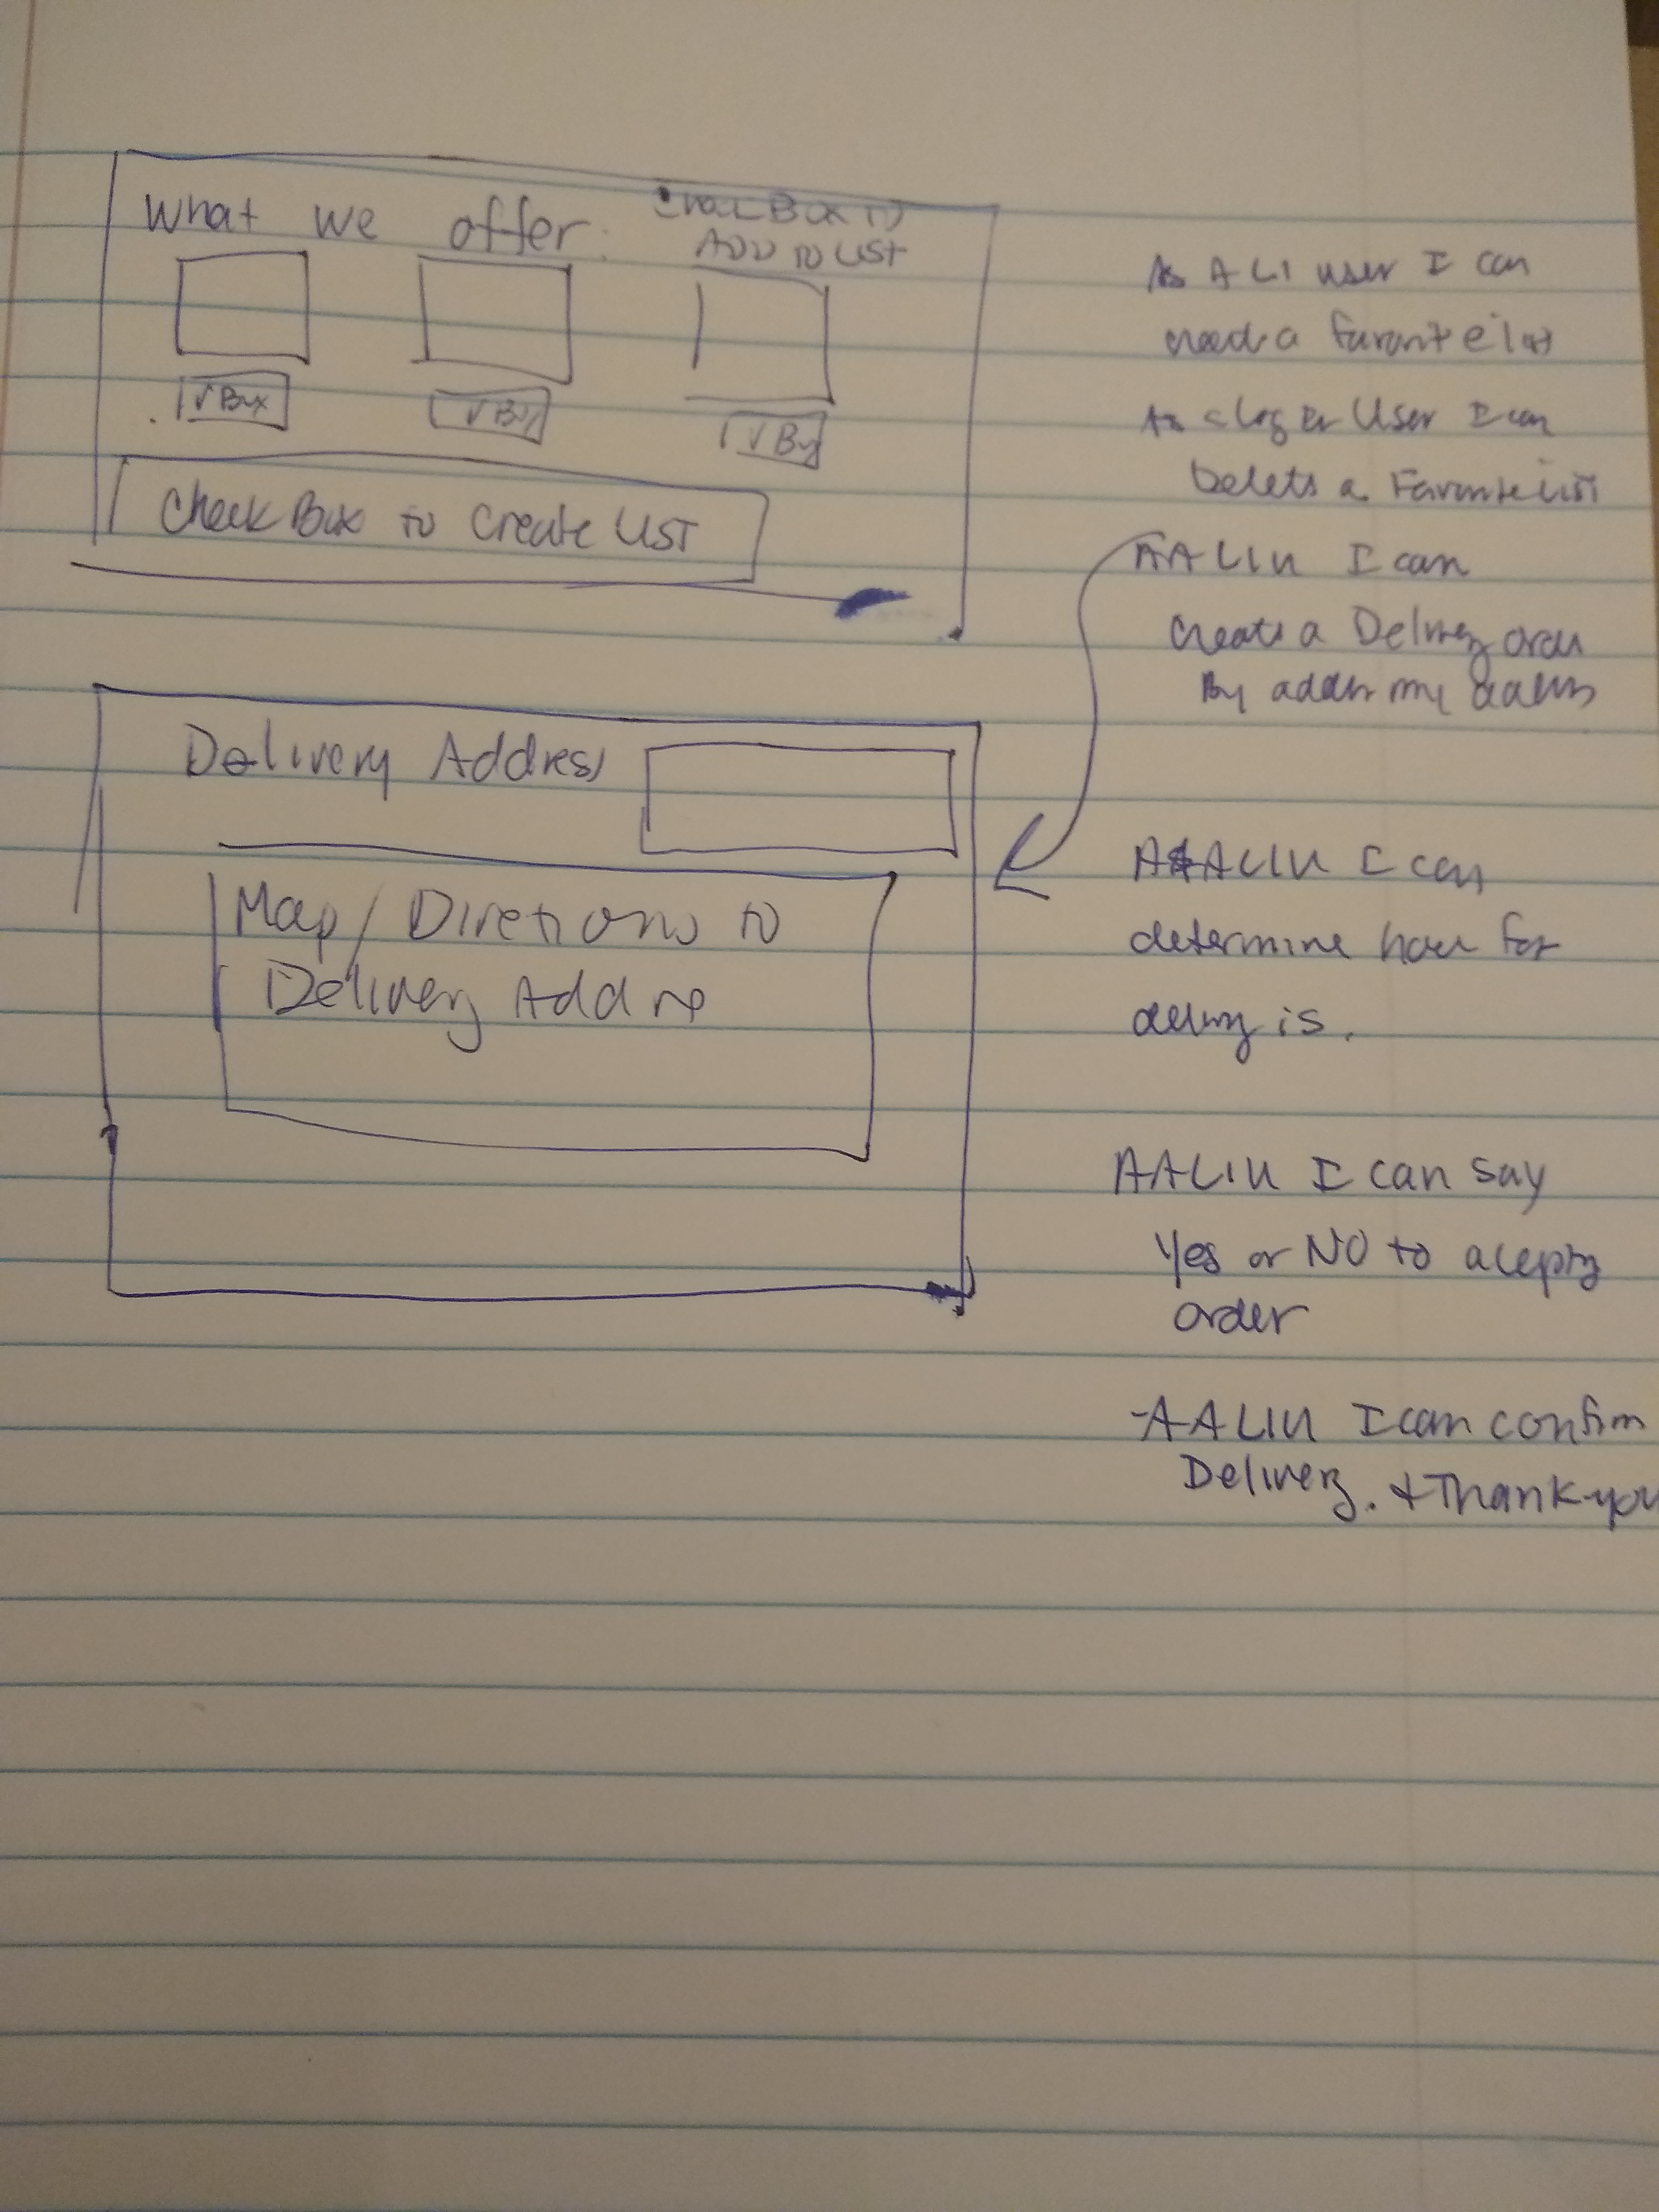 What we offer:
ADD TO LIST
√ Box
√ Box
√ Box
Check Box to Create LIST
Delivery Address
Map / Diretions to
Delivery Addre
As A LI user I can
a Favorite list
As a log in User I can
Delete a Favorite list
AALIU I can
Create a Delivery order
By my
AALIU I can
determine how far
is.
AALIU I can say
Yes or NO to
order
-AALIU I can confirm
Delivery. + Thank you